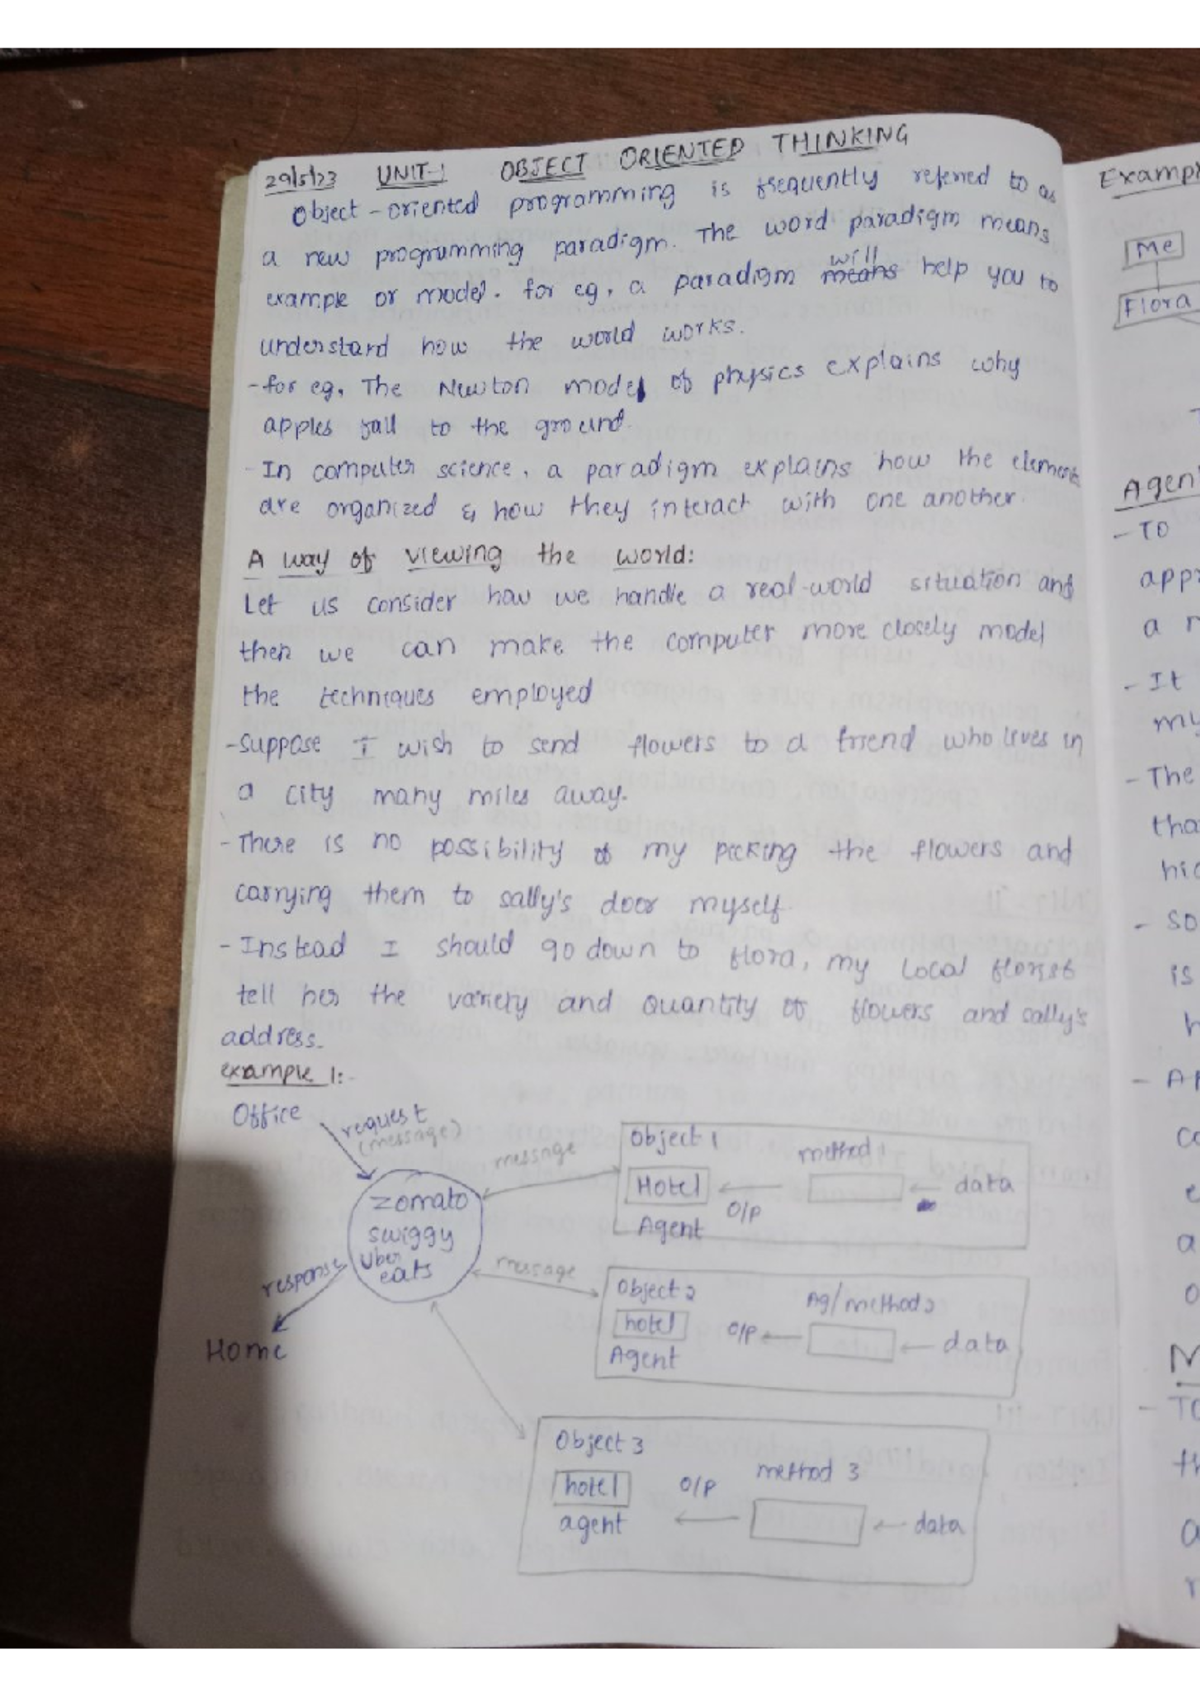 29/5/23 UNIT-1 OBJECT ORIENTED THINKING
Object-oriented programming is frequently referred to as
a new programming paradigm. The word paradigm means
example or model. for eg, a paradigm means will help you to
understand how the world works.
-for eg, The Newton model of physics explains why
apples fall to the ground.
-In computer science, a paradigm explains how the element
are organized & how they interact with one another
A way of viewing the world:
Let us consider how we handle a real-world situation and
then we can make the computer more closely model
the techniques employed
-Suppose I wish to send flowers to a friend who lives in
a city many miles away.
-There is no possibility of my picking the flowers and
carrying them to sally's door myself
-Instead I should go down to flora, my local florist
tell her the variety and quantity of flowers and sally's
address.
example 1:-
Office
request
(message)
zomato
swiggy
Uber
eats
response
Home
message
Object 1
method 1
Hotel
O/P
data
Agent
message
Object 2
Ag/method 2
hotel
O/P
data
Agent
Object 3
method 3
hotel
O/P
agent
data
Exampl
Me
Flora
Agent
- TO
app
a
- It
my
- The
tha
hic
- SO
is
h
- A
c
e
a
o
M
- TO
th
a
r